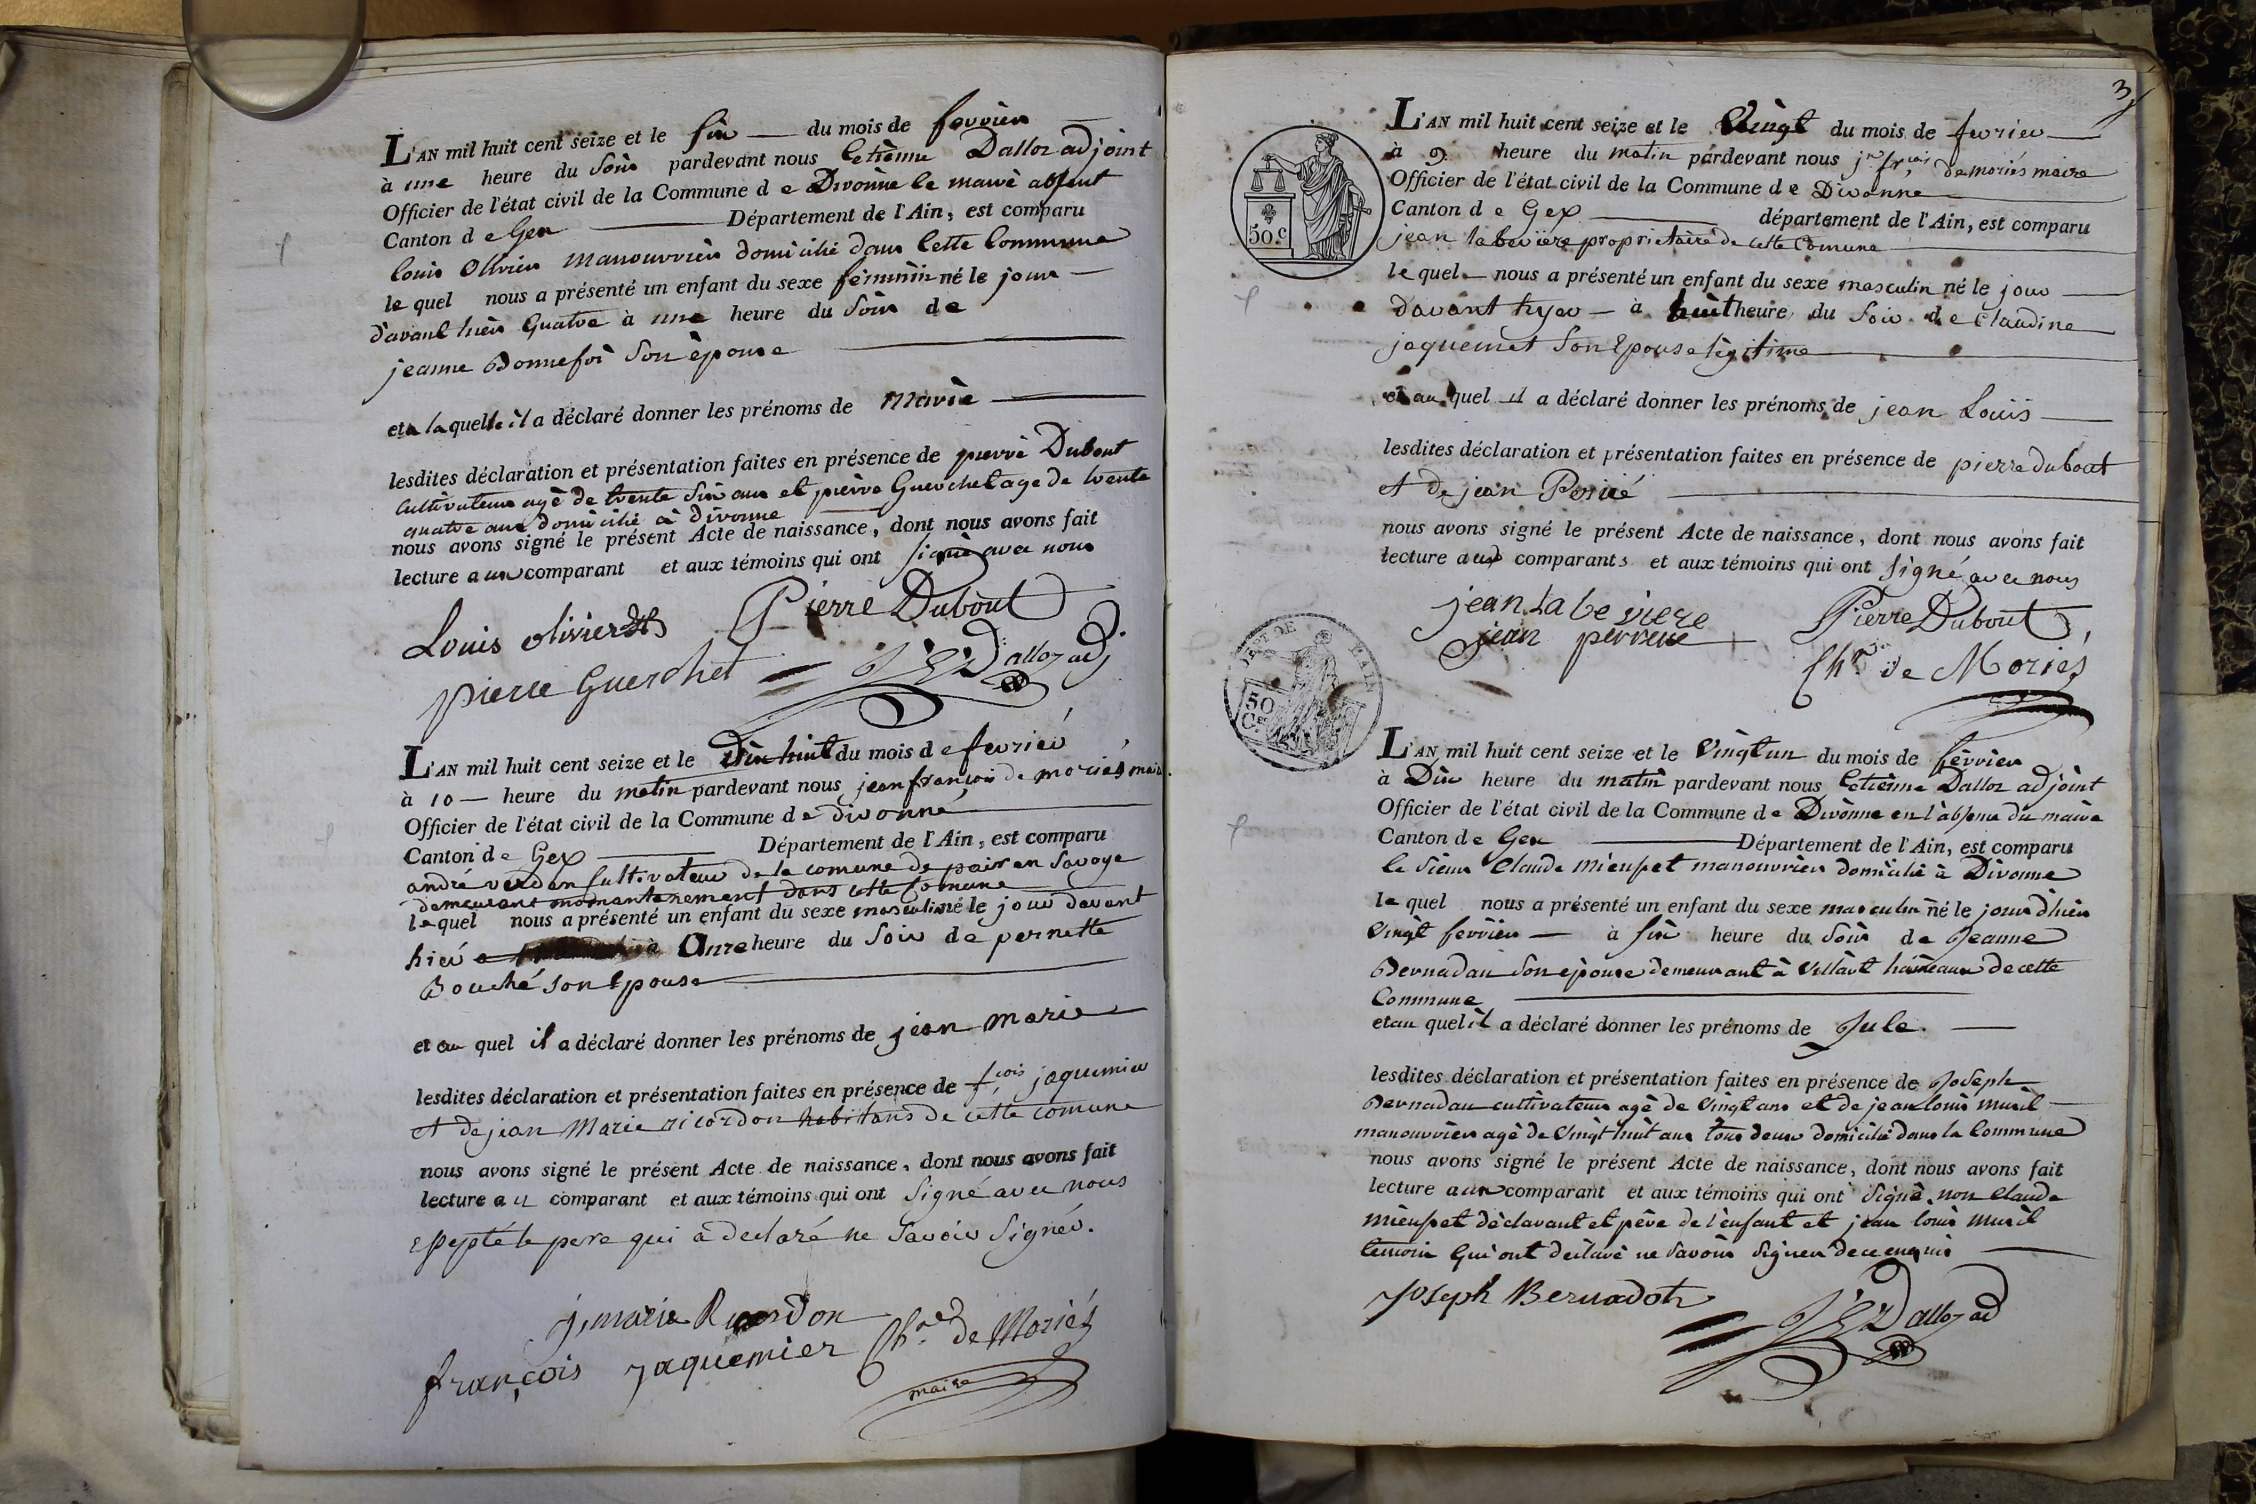 L'AN mil huit cent seize et le six du mois de fevrier
à une heure du Soir pardevant nous Etienne Dalloz adjoint
Officier de l'état civil de la Commune de Divonne le maire absent
Canton de Gex Département de l'Ain, est comparu
Louis Olivier manouvrier domicilié dans cette Commune
lequel nous a présenté un enfant du sexe feminin né le jour
d'avant hier quatre à une heure du Soir de
jeanne Bonnefoi son épouse
et a laquelle il a déclaré donner les prénoms de Marie
lesdites déclaration et présentation faites en présence de pierre Dubout
cultivateur agé de trente six ans et pierre Guerchet agé de trente
quatre ans domicilié à divonne
nous avons signé le présent Acte de naissance, dont nous avons fait
lecture au comparant et aux témoins qui ont signé avec nous
Louis olivier Pierre Dubout
pierre Guerchet Dalloz adj
L'AN mil huit cent seize et le Dix huit du mois de fevrier
à 10 heure du matin pardevant nous jean françois de moriés maire
Officier de l'état civil de la Commune de divonne
Canton de Gex Département de l'Ain, est comparu
andré verdan Cultivateur de la comune de pair en Savoye
demeurant momentanement dans cette Comune
lequel nous a présenté un enfant du sexe masculin né le jour davant
hier à Onze heure du Soir de pernette
Bouché son Epouse
et au quel il a déclaré donner les prénoms de jean marie
lesdites déclaration et présentation faites en présence de fcois jaquemier
et de jean Marie ricordon habitans de cette comune
nous avons signé le présent Acte de naissance, dont nous avons fait
lecture au comparant et aux témoins qui ont signé avec nous
excepté le pere qui a declaré ne Savoir Signér.
j, marie Ricordon
françois jaquemier Chr de Moriés
maire
3
L'AN mil huit cent seize et le Vingt du mois de fevrier
à 9 heure du matin pardevant nous jn frcois demoriés maire
Officier de l'état civil de la Commune de Divonne
Canton de Gex département de l'Ain, est comparu
50.c
jean labeviere proprietaire de cette Comune
lequel nous a présenté un enfant du sexe masculin né le jour
davant hyer à huit heure du Soir de Claudine
jaquemet Son Epouse légitime
et au quel il a déclaré donner les prénoms de jean Louis
lesdites déclaration et présentation faites en présence de pierre dubout
et de jean
nous avons signé le présent Acte de naissance, dont nous avons fait
lecture aux comparants et aux témoins qui ont signé avec nous
jean labeviere Pierre Dubout
jean Chr de Moriés
DEPT DE L'AIN
50 Cs
L'AN mil huit cent seize et le Vingt un du mois de fevrier
à Dix heure du matin pardevant nous Etienne Dalloz adjoint
Officier de l'état civil de la Commune de Divonne en l'absence du maire
Canton de Gex Département de l'Ain, est comparu
le sieur Claude mieusset manouvrier domicilié à Divonne
lequel nous a présenté un enfant du sexe masculin né le jour d'hier
Vingt fevrier à six heure du Soir de Jeanne
Bernadau son épouse demeurant à Villard hameau de cette
Commune
et au quel il a déclaré donner les prénoms de Jule.
lesdites déclaration et présentation faites en présence de Joseph
Bernadau cultivateur agé de Vingt ans et de jean louis
manouvrier agé de Vingt huit ans tous deux domicilié dans la Commune
nous avons signé le présent Acte de naissance, dont nous avons fait
lecture au comparant et aux témoins qui ont Signé non Claude
mieusset déclarant et père de l'enfant et jean louis
temoin qui ont déclaré ne savoir signer de ce enquis
Joseph Dalloz ad